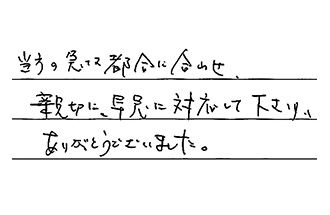 当方の急な都合に合わせ、
親切に、早急に対応して下さり、
ありがとうございました。